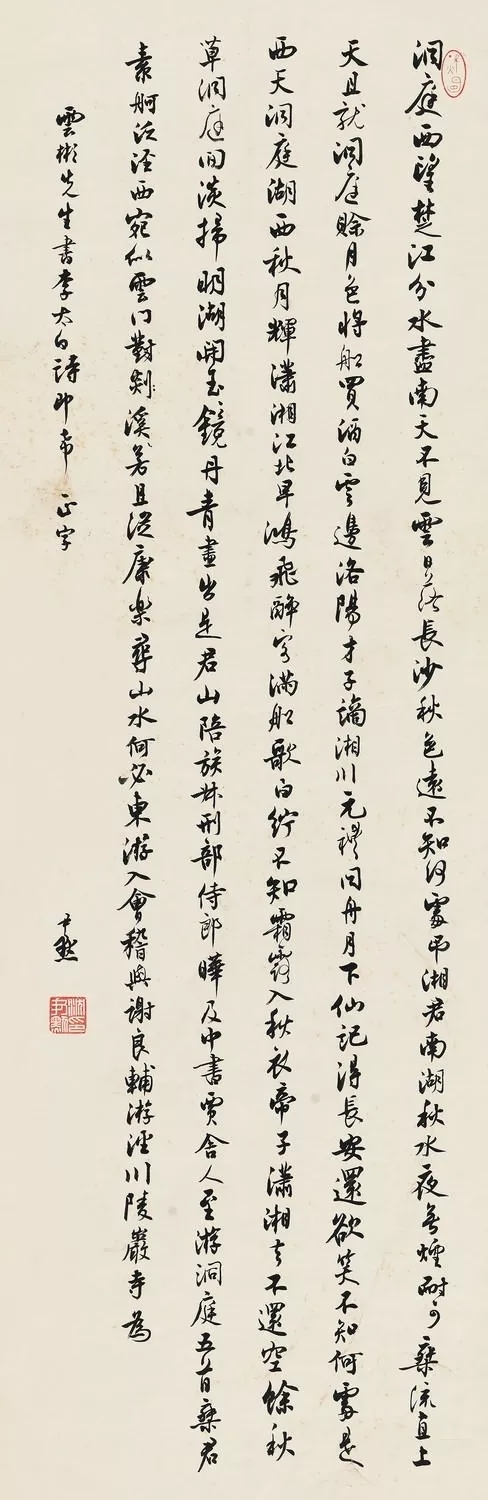 洞庭西望楚江分水盡南天不見雲日落長沙秋色遠不知何處吊湘君南湖秋水夜無煙耐可乘流直上
天且就洞庭賒月色將船買酒白雲邊洛陽才子謫湘川元禮同舟月下仙記得長安還欲笑不知何處是
西天洞庭湖西秋月輝瀟湘江北早鴻飛醉客滿船歌白紵不知霜露入秋衣帝子瀟湘去不還空餘秋
草洞庭間淡掃明湖開玉鏡丹青畫出是君山陪族叔刑部侍郎曄及中書賈舍人至游洞庭五首乘君
素舸泛涇西宛似雲門對剡溪若且從康樂尋山水何必東游入會稽與謝良輔游涇川陵巖寺為
雲彬先生書李太白詩即希 正字
尹默